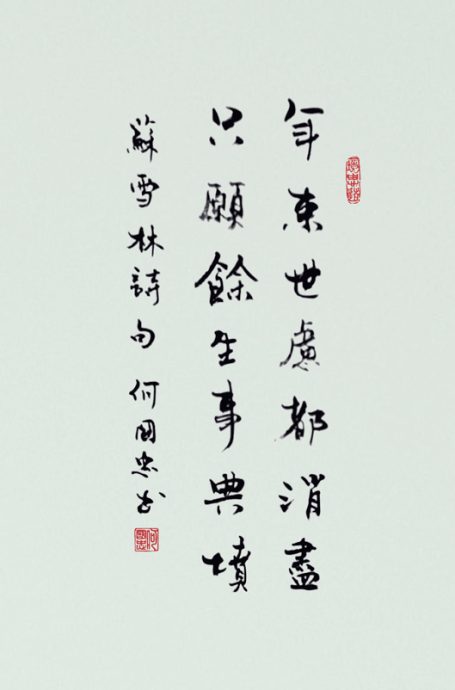 年來世慮都消盡
只願餘生事典墳
蘇雪林詩句 何國忠书